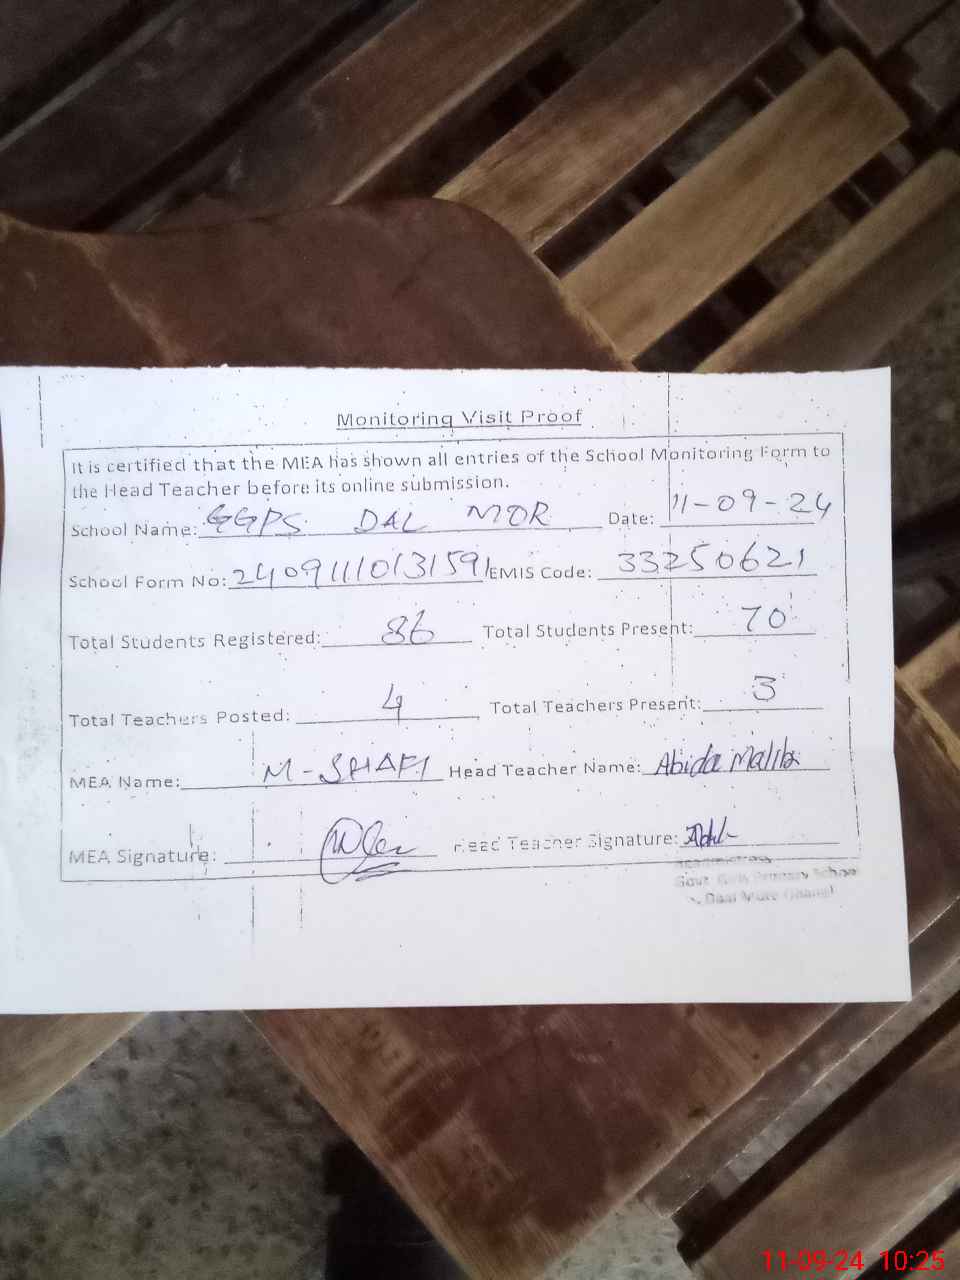 Monitoring Visit Proof
It is certified that the MEA has shown all entries of the School Monitoring Form to
the Head Teacher before its online submission.
School Name: GGPS DAL MOR Date: 11-09-24
School Form No: 24091110131591 EMIS Code: 33250621
Total Students Registered: 86 Total Students Present: 70
Total Teachers Posted: 4 Total Teachers Present: 3
MEA Name: M-SHAFI Head Teacher Name: Abida Malik
MEA Signature: Head Teacher Signature:
Govt Girls Primary School
11-09-24 10:25